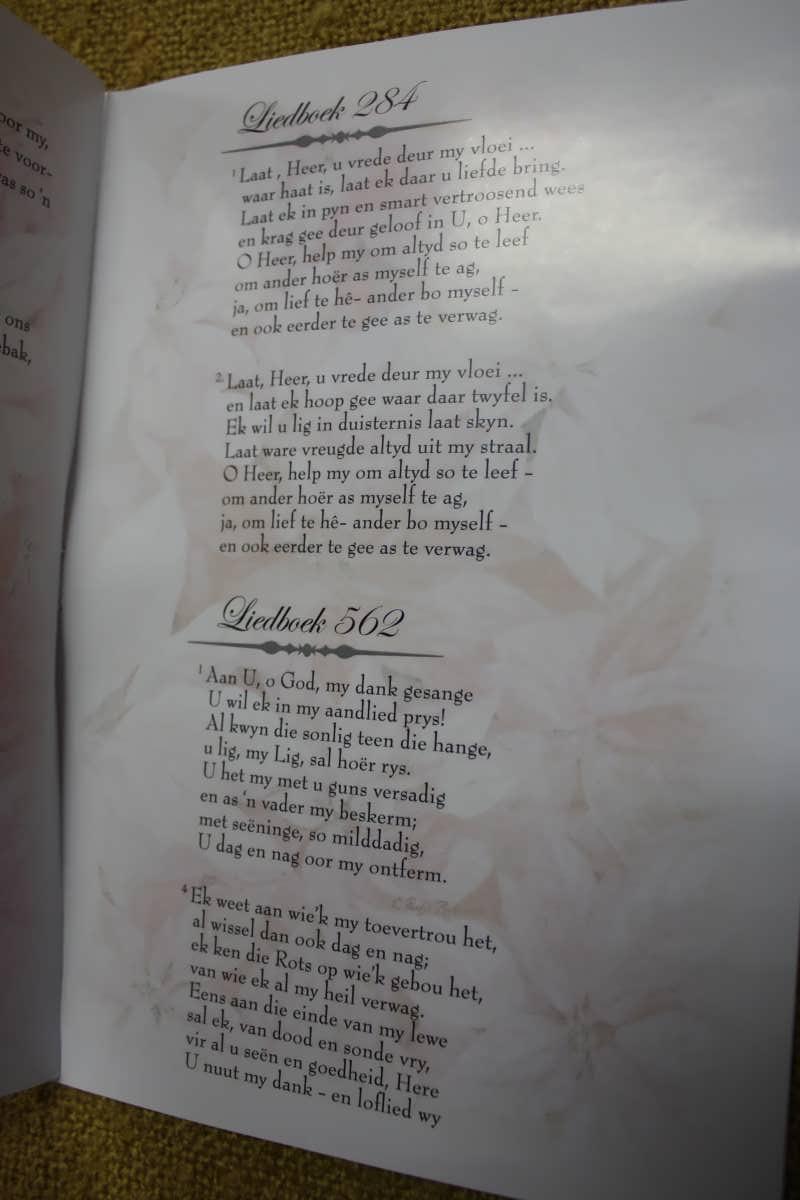 oor my,
te voor-
as so 'n
ons
ebak,
Liedboek 284
1 Laat , Heer, u vrede deur my vloei ...
waar haat is, laat ek daar u liefde bring.
Laat ek in pyn en smart vertroosend wees
en krag gee deur geloof in U, o Heer.
O Heer, help my om altyd so te leef
om ander hoër as myself te ag,
ja, om lief te hê- ander bo myself -
en ook eerder te gee as te verwag.
2 Laat, Heer, u vrede deur my vloei ...
en laat ek hoop gee waar daar twyfel is.
Ek wil u lig in duisternis laat skyn.
Laat ware vreugde altyd uit my straal.
O Heer, help my om altyd so te leef -
om ander hoër as myself te ag,
ja, om lief te hê- ander bo myself -
en ook eerder te gee as te verwag.
Liedboek 562
1 Aan U, o God, my dank gesange
U wil ek in my aandlied prys!
Al kwyn die sonlig teen die hange,
u lig, my Lig, sal hoër rys.
U het my met u guns versadig
en as 'n vader my beskerm;
met seëninge, so milddadig,
U dag en nag oor my ontferm.
4 Ek weet aan wie'k my toevertrou het,
al wissel dan ook dag en nag;
ek ken die Rots op wie'k gebou het,
van wie ek al my heil verwag.
Eens aan die einde van my lewe
sal ek, van dood en sonde vry,
vir al u seën en goedheid, Here
U nuut my dank - en loflied wy